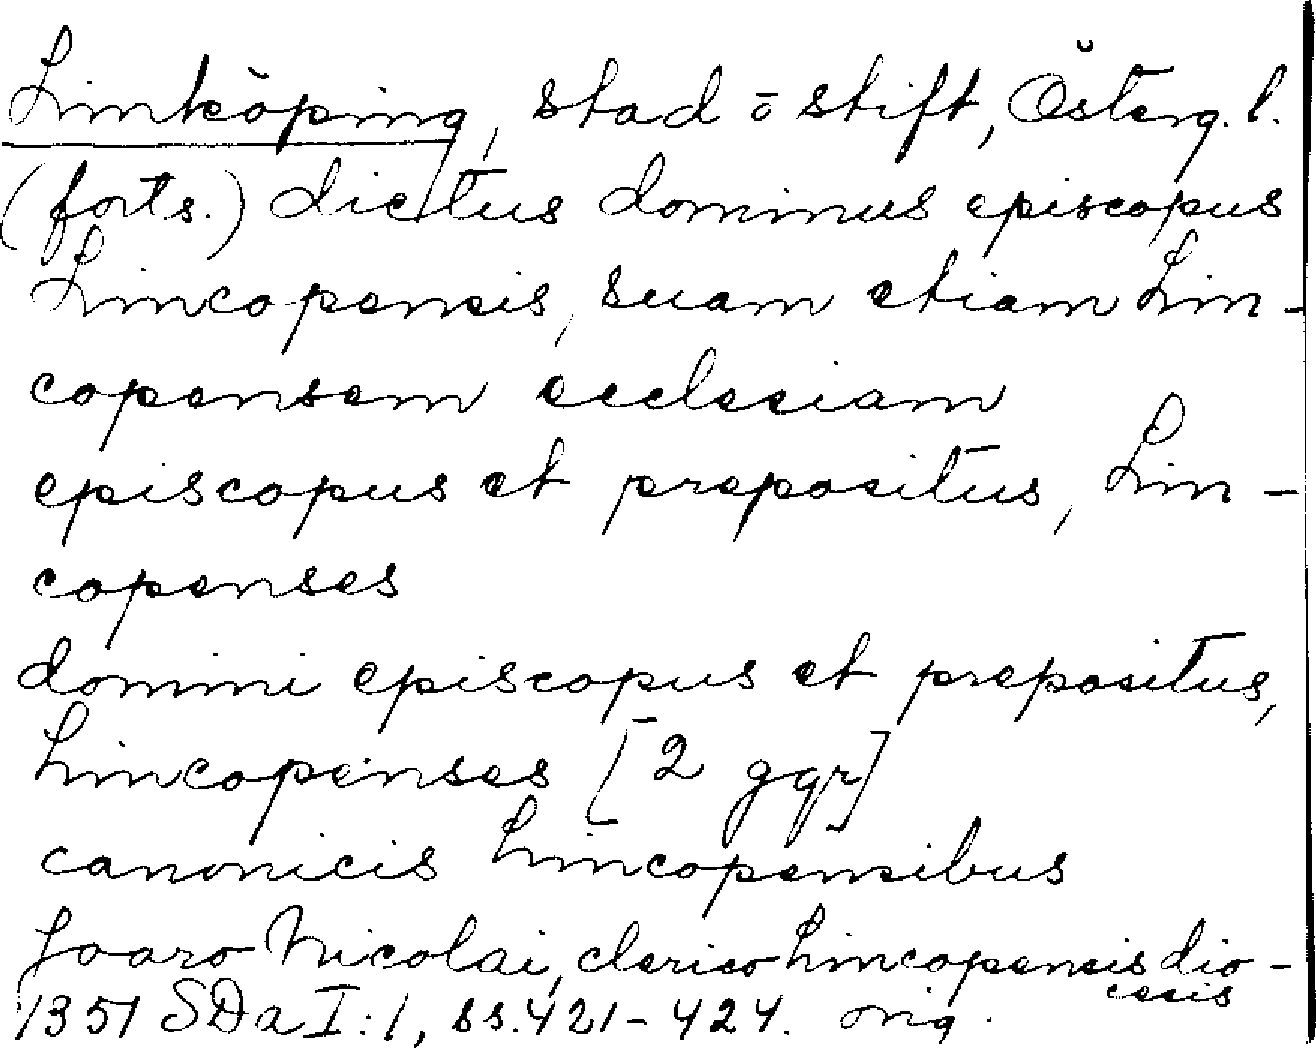 Linköping, stad o stift, Österg. l.
(forts.) dictus dominus episcopus
Lincopensis, suam etiam Lin-
copensem ecclesiam
episcopus et prepositus, Lin-
copenses
domini episcopus et prepositus,
Lincopenses [2 ggr]
canonicis Lincopensibus
Ioaro Nicolai, clerico Lincopensis dio-
cesis
1351 SDa I:1, ss. 421-424. orig.